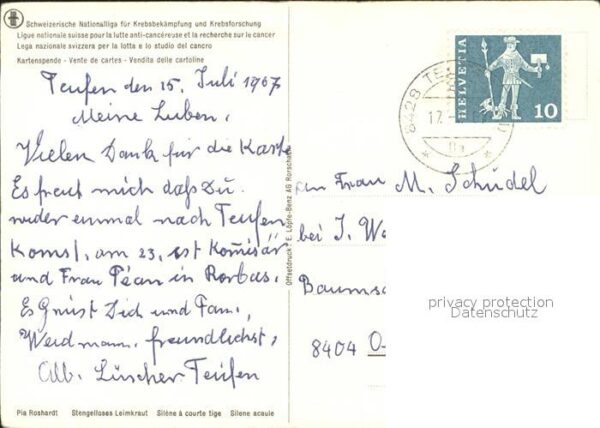 Schweizerische Nationalliga für Krebsbekämpfung und Krebsforschung
Ligue nationale suisse pour la lutte anti-cancéreuse et la recherche sur le cancer
Lega nazionale svizzera per la lotta e lo studio del cancro
Kartenspende - Vente de cartes - Vendita delle cartoline
Teufen den 15. Juli 1967
Meine Lieben,
Vielen Dank für die Karte
Es freut mich daß Du
wieder einmal nach Teufen
Komst, am 23. ist Komisär
und Frau Péan in Rorbas.
Es Grüst Dich und Fam.
Weidmann, freundlichst,
Alb. Lüscher Teufen
Pia Roshardt Stengelloses Leimkraut Silène à courte tige Silene acaule
Offsetdruck: E. Löpfe-Benz AG Rorschach
HELVETIA
10
8428 TEUFEN
17.
an Frau M. Schüdel
bei J. W
Baumsc
8404 O
privacy protection
Datenschutz